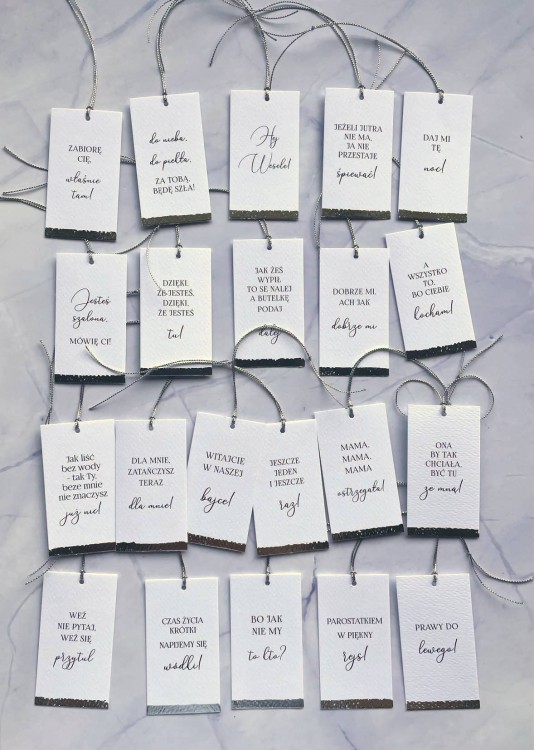 ZABIORĘ
CIĘ,
właśnie
tam!
do nieba,
do piekła,
ZA TOBĄ,
BĘDĘ SZŁA!
Hej
Wesele!
JEŻELI JUTRA
NIE MA,
JA NIE
PRZESTAJĘ
śpiewać!
DAJ MI
TĘ
noc!
Jesteś
szalona,
MÓWIĘ CI!
DZIĘKI,
ŻE JESTEŚ,
DZIĘKI,
ŻE JESTEŚ
tu!
JAK ŻEŚ
WYPIŁ
TO SE NALEJ
A BUTELKĘ
PODAJ
dalej
DOBRZE MI,
ACH JAK
dobrze mi
A
WSZYSTKO
TO,
BO CIEBIE
kocham!
Jak liść
bez wody
- tak Ty,
beze mnie
nie znaczysz
już nic!
DLA MNIE,
ZATAŃCZYSZ
TERAZ
dla mnie!
WITAJCIE
W NASZEJ
bajce!
JESZCZE
JEDEN
I JESZCZE
raz!
MAMA,
MAMA,
MAMA
ostrzegała!
ONA
BY TAK
CHCIAŁA,
BYĆ TU
ze mną!
WEŹ
NIE PYTAJ,
WEŹ SIĘ
przytul
CZAS ŻYCIA
KRÓTKI
NAPIJEMY SIĘ
wódki!
BO JAK
NIE MY
to kto?
PAROSTATKIEM
W PIĘKNY
rejs!
PRAWY DO
lewego!